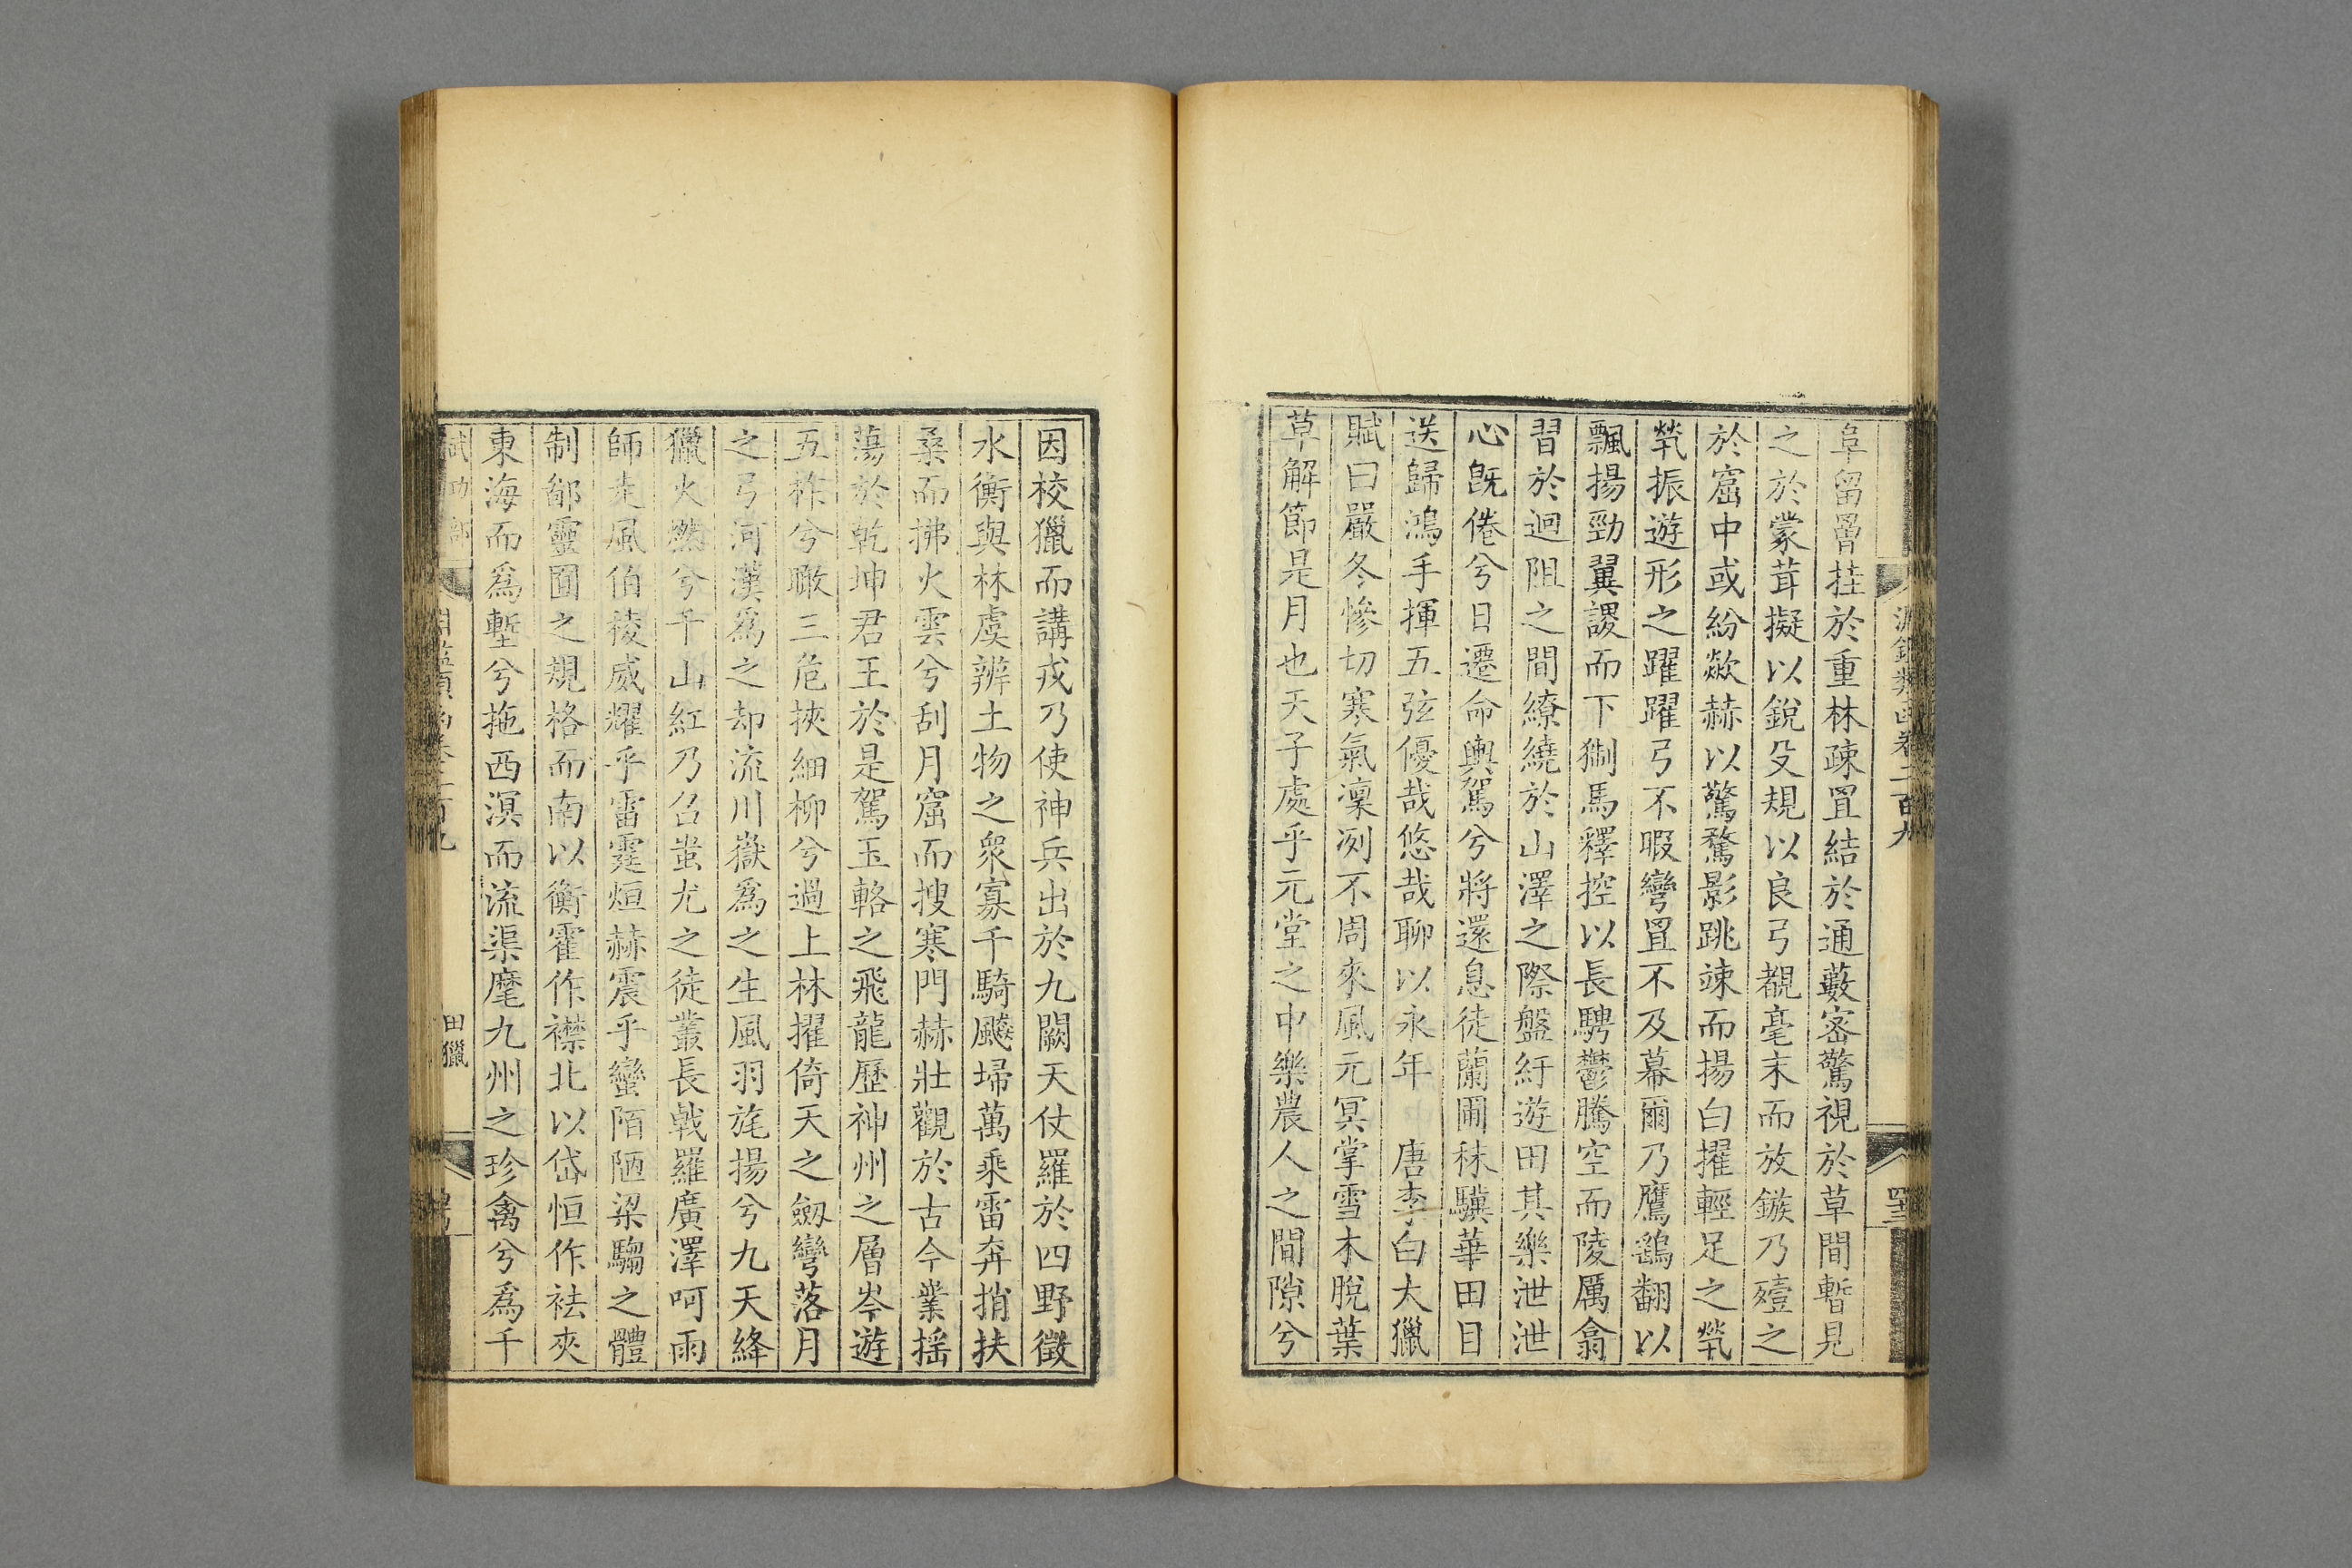 淵鑑類函卷二百九
阜留罾挂於重林疎罝結於通藪宻驚視於草間暫見
之於蒙茸擬以銳殳規以良弓覩毫末而放鏃乃殪之
於窟中或紛歘赫以驚騖影跳竦而揚白擢輕足之煢
煢振遊形之躍躍弓不暇彎罝不及幕爾乃鷹鷂翻以
飄揚勁翼謖而下猘馬釋控以長騁鬱騰空而陵厲翕
習於迴阻之間繚繞於山澤之際盤紆遊田其樂泄泄
心旣倦兮日遷命輿駕兮將還息徒蘭圃秣驥華田目
送歸鴻手揮五弦優哉悠哉聊以永年　唐李白大獵
賦曰嚴冬慘切寒氣凜冽不周來風元冥掌雪木脫葉
草解節是月也天子處乎元堂之中樂農人之間隙兮
因校獵而講戎乃使神兵出於九闕天仗羅於四野徵
水衡與林虞辨土物之衆寡千騎飈埽萬乘雷奔捎扶
桑而拂火雲兮刮月窟而搜寒門赫壯觀於古今業揺
蕩於乾坤君王於是駕玉輅之飛龍歷神州之層岑遊
五柞兮瞰三危挾細柳兮過上林擢倚天之劔彎落月
之弓河漢爲之却流川嶽爲之生風羽旄揚兮九天絳
獵火燃兮千山紅乃召蚩尤之徒叢長戟羅廣澤呵雨
師走風伯稜威耀乎雷霆烜赫震乎蠻陌陋梁騶之體
制鄙靈囿之規格而南以衡霍作襟北以岱恒作袪夾
東海而爲塹兮拖西溟而流渠麾九州之珍禽兮爲千
田獵